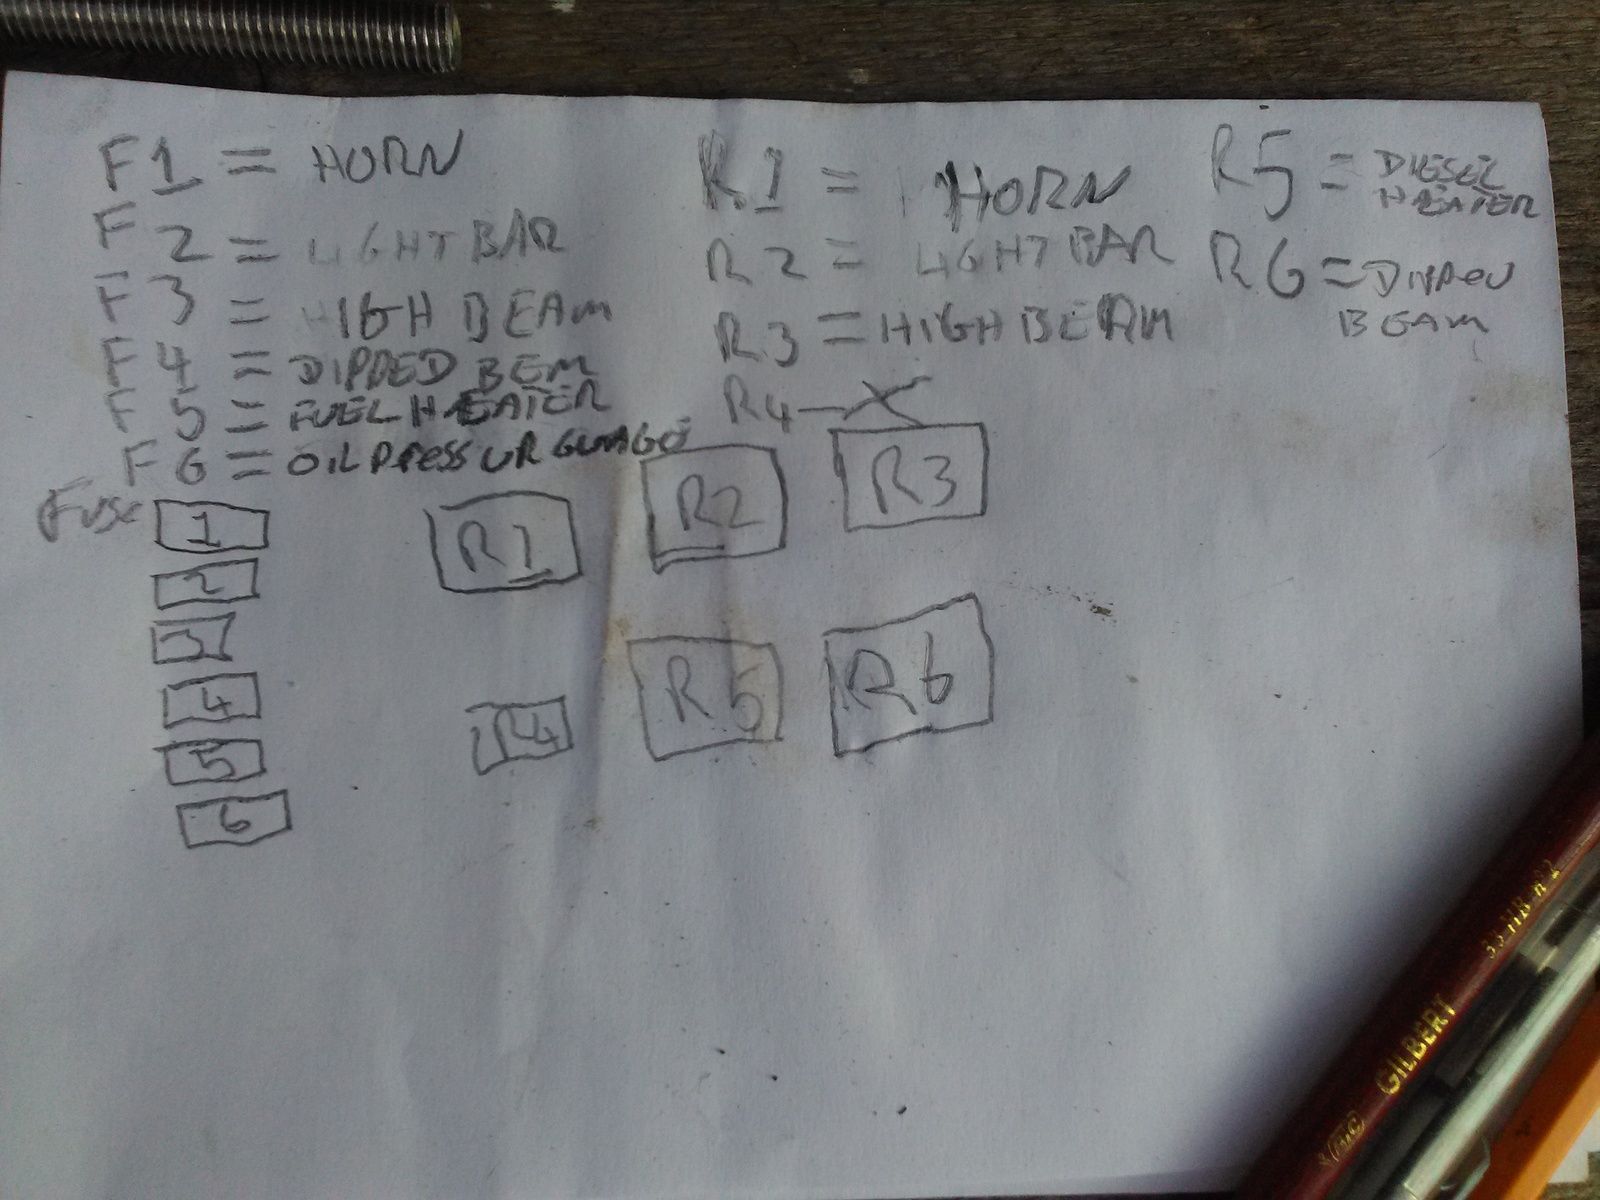 F1 = HORN
F2 = LIGHT BAR
F3 = HIGH BEAM
F4 = DIPPED BEM
F5 = FUEL HEATER
F6 = OIL PressUR GUAGE
R1 = HORN
R2 = LIGHT BAR
R3 = HIGH BEAM
R4 - X
R5 = DIESEL
HEATER
R6 =
BEAM
Fuse
1
2
3
4
5
6
R1
R2
R3
R4
R5
R6
GILBERT 33-HB-n°2